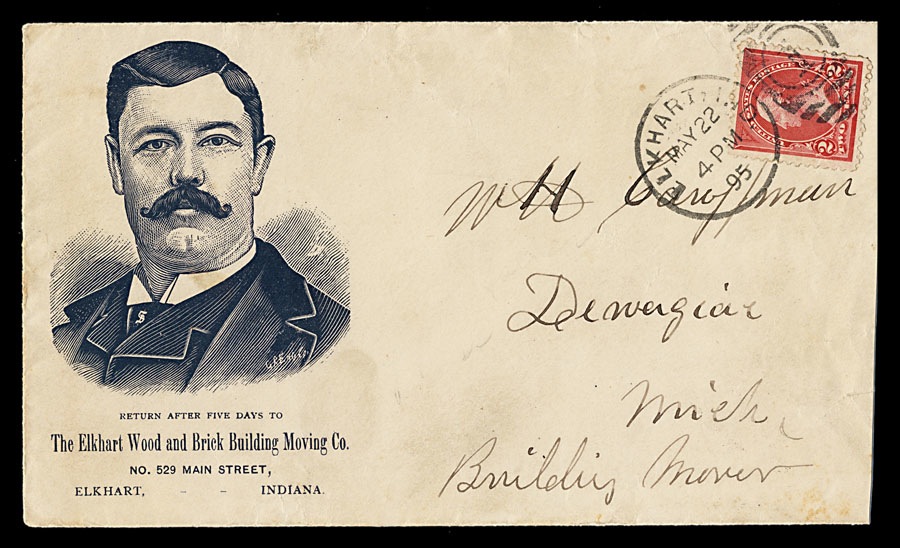 ELKHART, IND.
MAY 22
4 PM
95
W H
Dewagiac
Mich,
Building Mover
RETURN AFTER FIVE DAYS TO
The Elkhart Wood and Brick Building Moving Co.
NO. 529 MAIN STREET,
ELKHART, - - INDIANA.